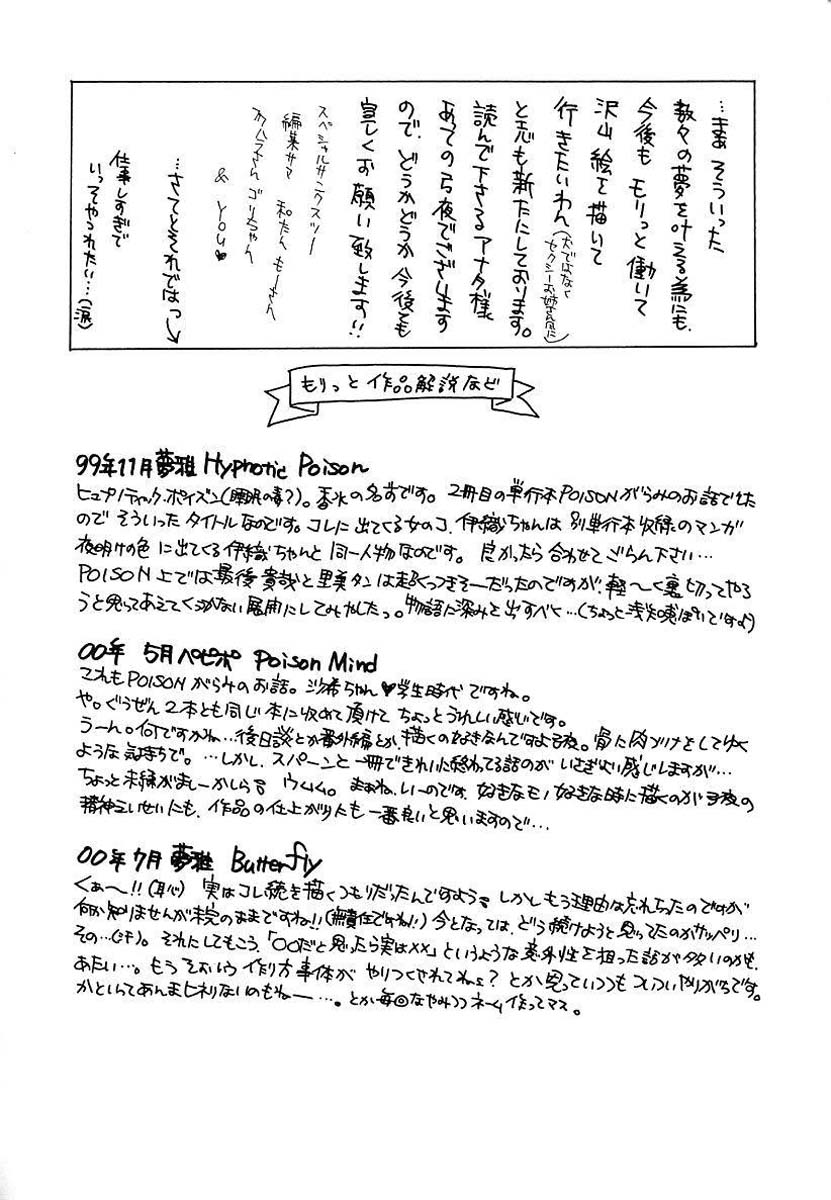 …まあ そういった
数々の夢を叶える為にも、
今後も モリっと 働いて
沢山 絵を描いて
行きたいわん(犬ではなく
セクシーお姉さん風に)
と志も新たにしております。
読んで下さるアナタ様
あっての弓夜でございます
ので、どうかどうか 今後とも
宜しくお願い致します!!
スペシャルサンクスツー
編集サマ 和たん もーさん
ゴリちゃん
& YOU♥
…さてとそれではっ↘
仕事しすぎで
いっそやつれたい…(涙)
もりっと 作品解説など
99年11月夢雅 Hyphotic Poison
ヒュプノティック・ポイズン(睡眠の毒?)。香水の名前です。2冊目の単行本POISONがらみのお話でした
ので そういった タイトルなのです。コレに出てくる女のコ、伊織ちゃんは 別単行本収録のマンガ
夜明けの色 に出てくる伊織ちゃんと 同一人物なのです。 良かったら 合わせてごらん下さい…
POISON上では最後 貴哉と里美タンは超くっつきそーだったのですが、軽〜く裏切ってやろ
うと思ってあえてくっつかない展開にしてみやしたっ。物語に深みを出すべく…(ちょっと浅知恵ぽいですよう)
00年 5月ペピポ Poison Mind
これもPOISONがらみのお話。沙希ちゃん♥学生時代ですね。
や。ぐうぜん2本とも同じ本に収めて頂けて ちょっとうれしい感じです。
うーん。何ですかね…後日談とか番外編とか、描くの好きなんですよ子夜。骨に肉づけをしてゆく
ような気持ちで。…しかし、スパーンと一冊できれいに終わってる話のがいさぎいい感じしますが…
ちょっと未練がましーかしら? ウムム。まあね、いーのです。好きなモノ好きな時に描くのが子夜の
精神えいせいにも、作品の仕上がりにも 一番良いと思いますので…
00年7月 夢雅 Butterfly
くぁ〜!!(恥) 実はコレ続きを描くつもりだったんですよう。しかしもう理由は忘れちったのですが
何か知りませんが未完のままですね!!(無責任ですね!)今となっては、どう続けようと思ってたのかサッパリ…
その…(汗)。それにしてもこう、「○○だと思ったら実は××」というような意外性を狙った話が多いのかも、
あたい…。もう そおいう 作り方事体が やりつくされてねぇ? とか思っていつつも ついついやりがちです。
かといってあんまヒネりないのもねー…。とか毎回なやみつつネーム作ってマス。